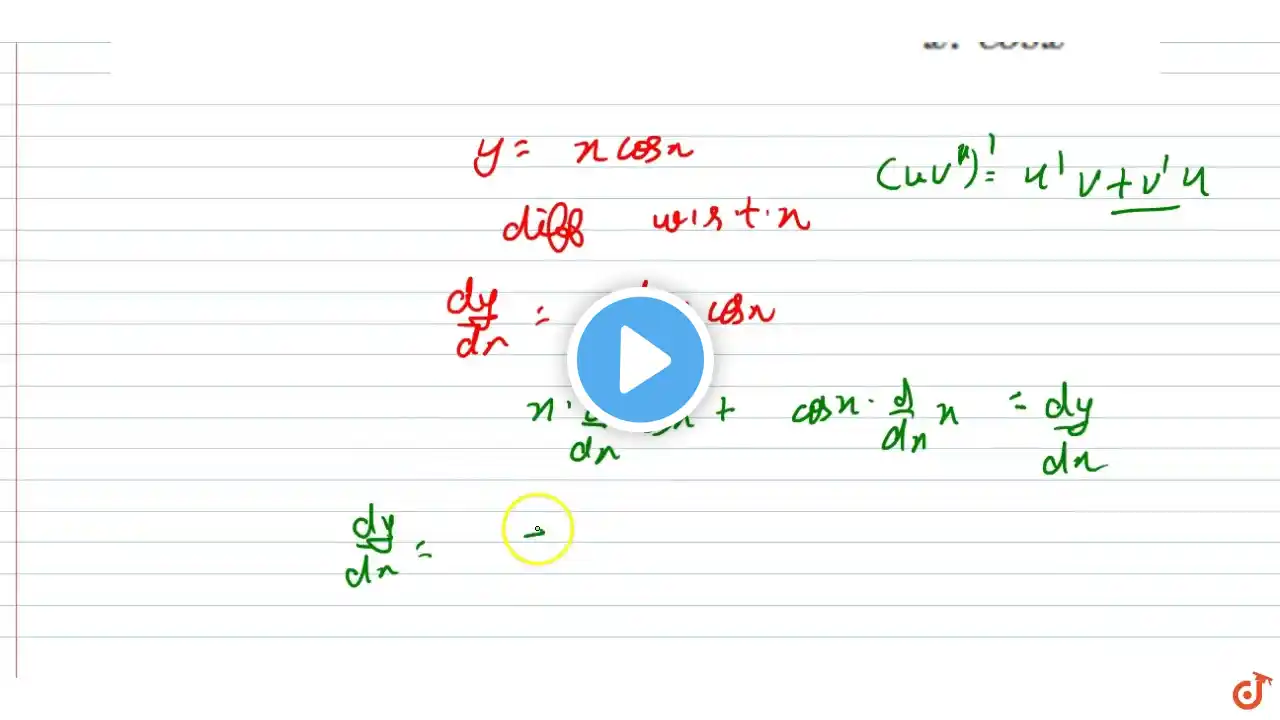 x. cosx
y = x cosx
(uv)' = u' v + v' u
diff w.r.t. x
dy/dx = cosx
x . dx + cosx . d/dx x = dy/dx
dy/dx =